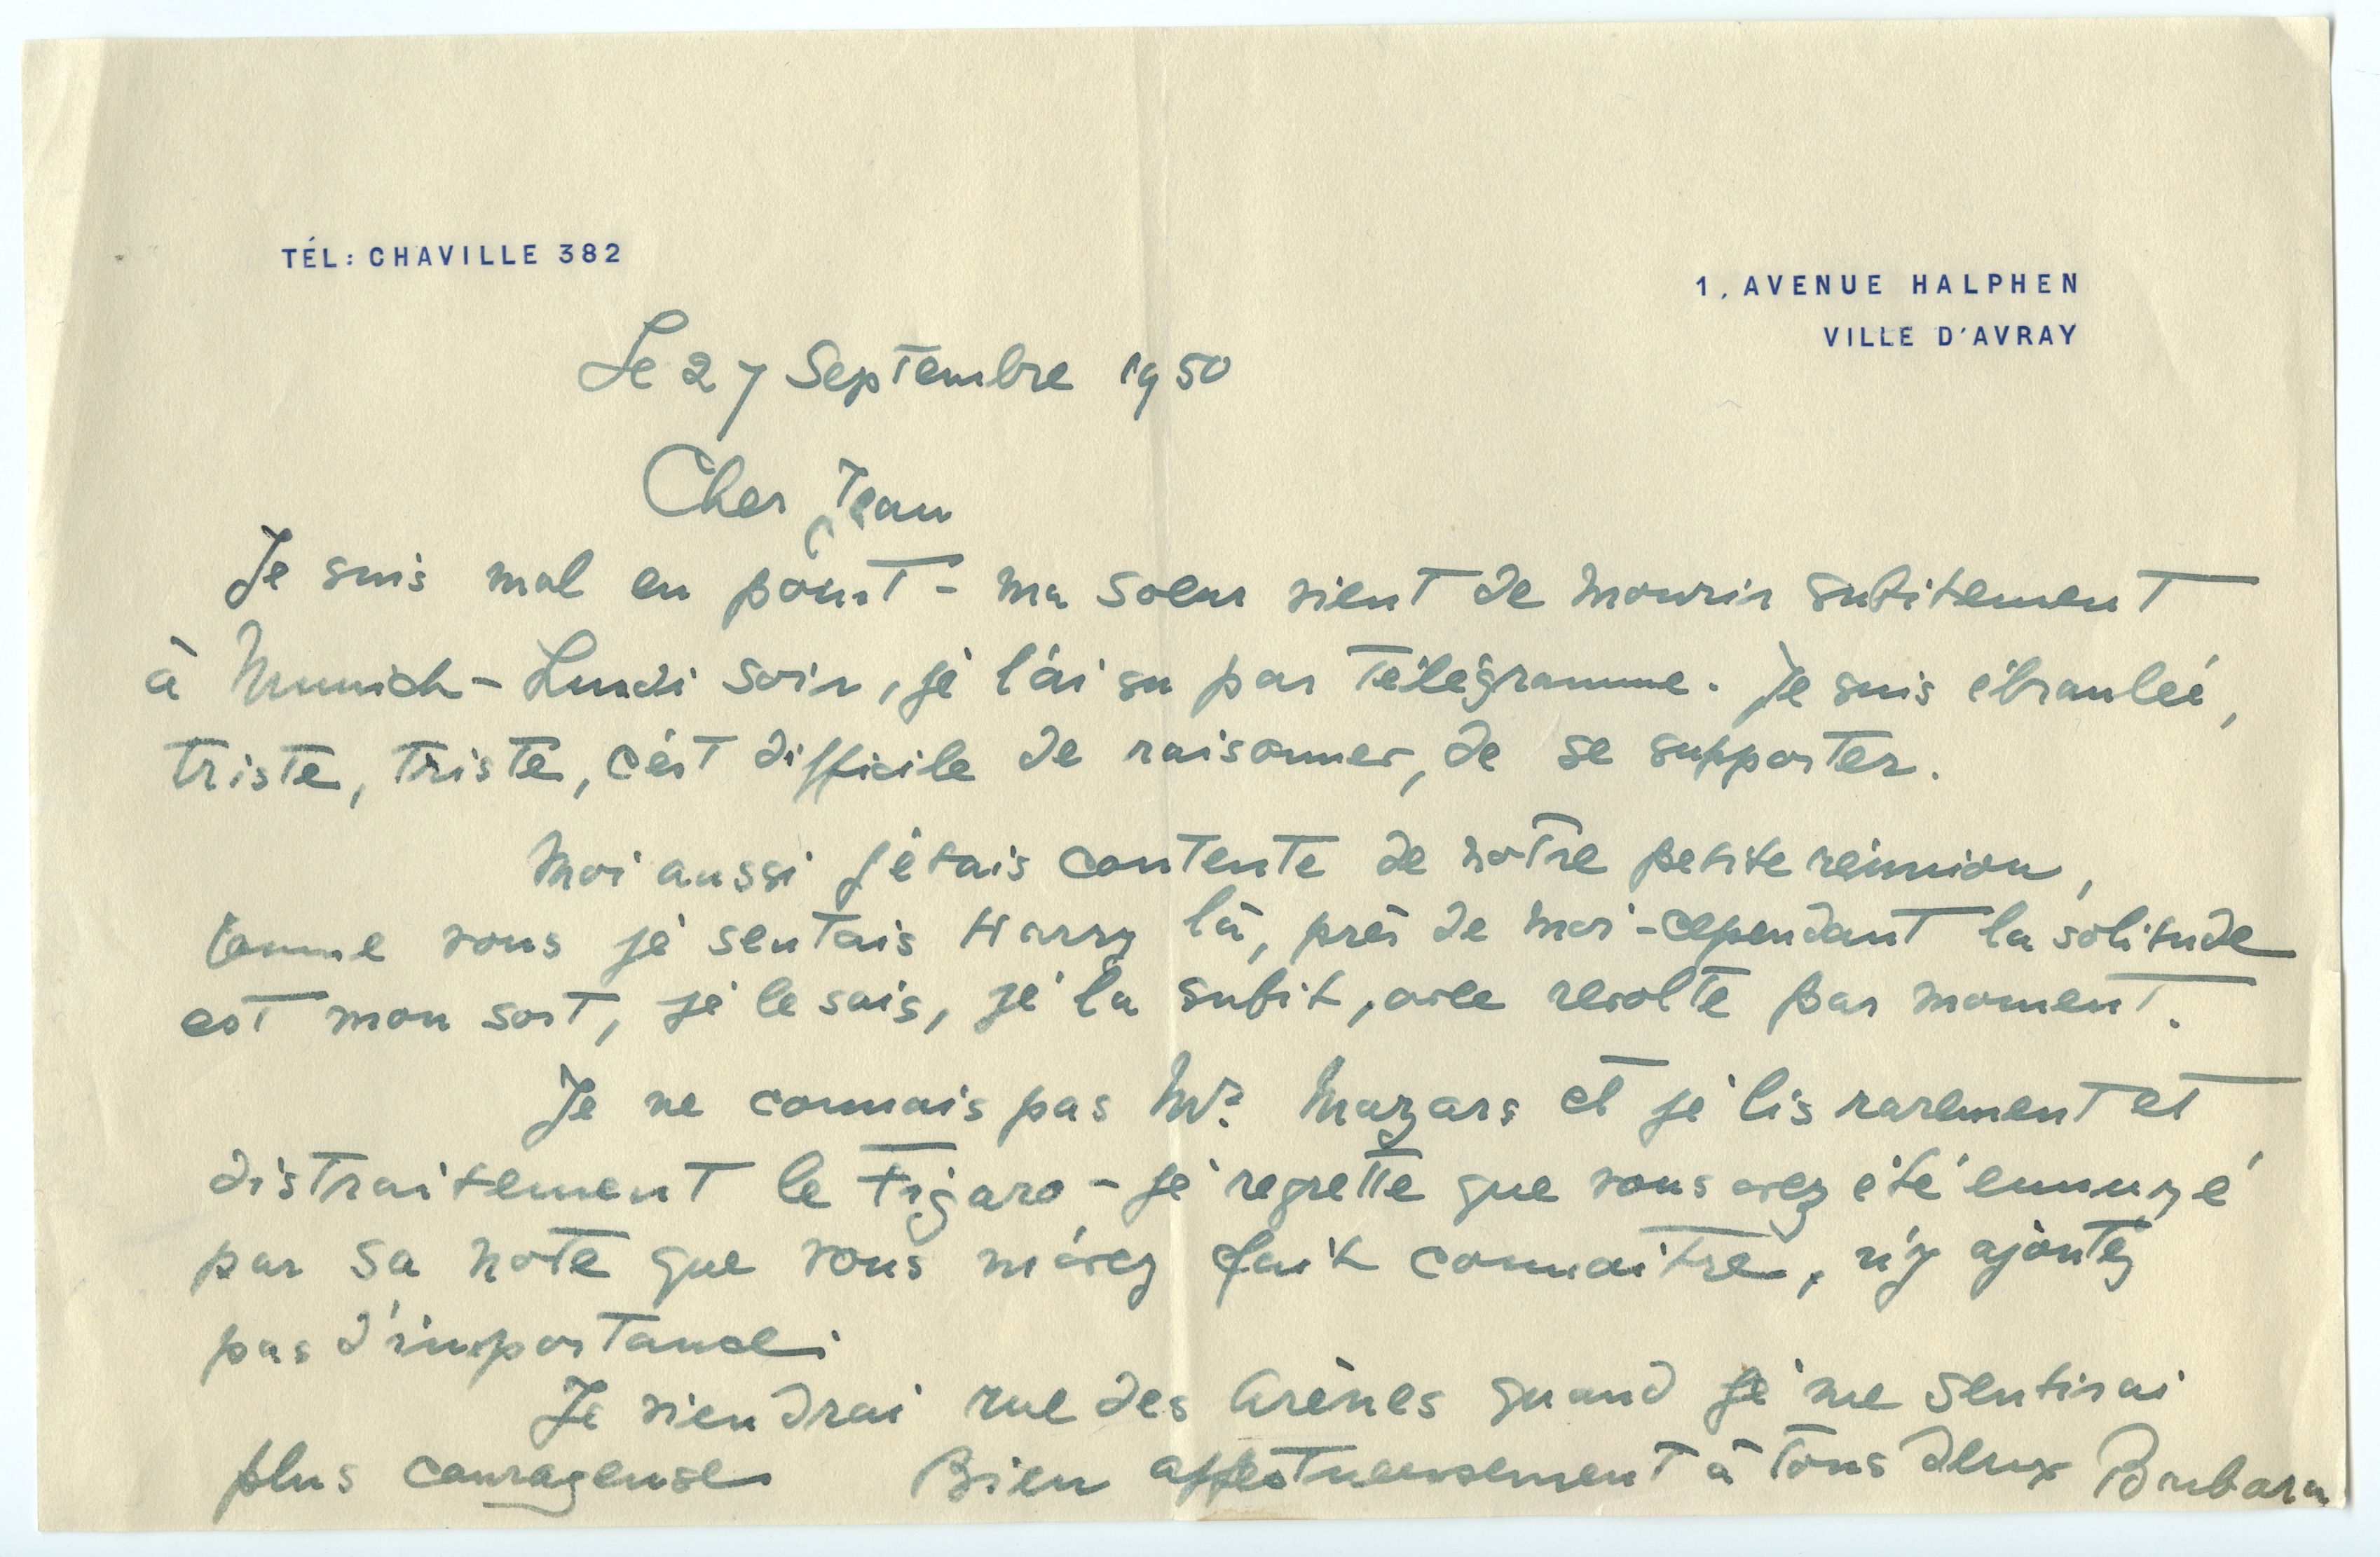 TÉL: CHAVILLE 382
1, AVENUE HALPHEN
VILLE D'AVRAY
Le 27 Septembre 1950
Cher Jean
Je suis mal en point - ma soeur vient de mourir subitement
à Munich - Lundi soir, je l'ai su par télégramme. Je suis ébranlée,
triste, triste, c'est difficile de raisonner, de se supporter.
Moi aussi j'étais contente de notre petite réunion,
comme vous je sentais Harry là, près de moi - cependant la solitude
est mon sort, je le sais, je la subit, avec revolte par moment.
Je ne connais pas Mr. Mazars et je lis rarement et
distraitement le Figaro - je regrette que vous avez été ennuyé
par sa note que vous m'avez fait connaitre, n'y ajoutez
pas d'importance.
Je viendrai rue des Arènes quand je me sentirai
plus courageuse Bien affectueusement à tous deux Barbara